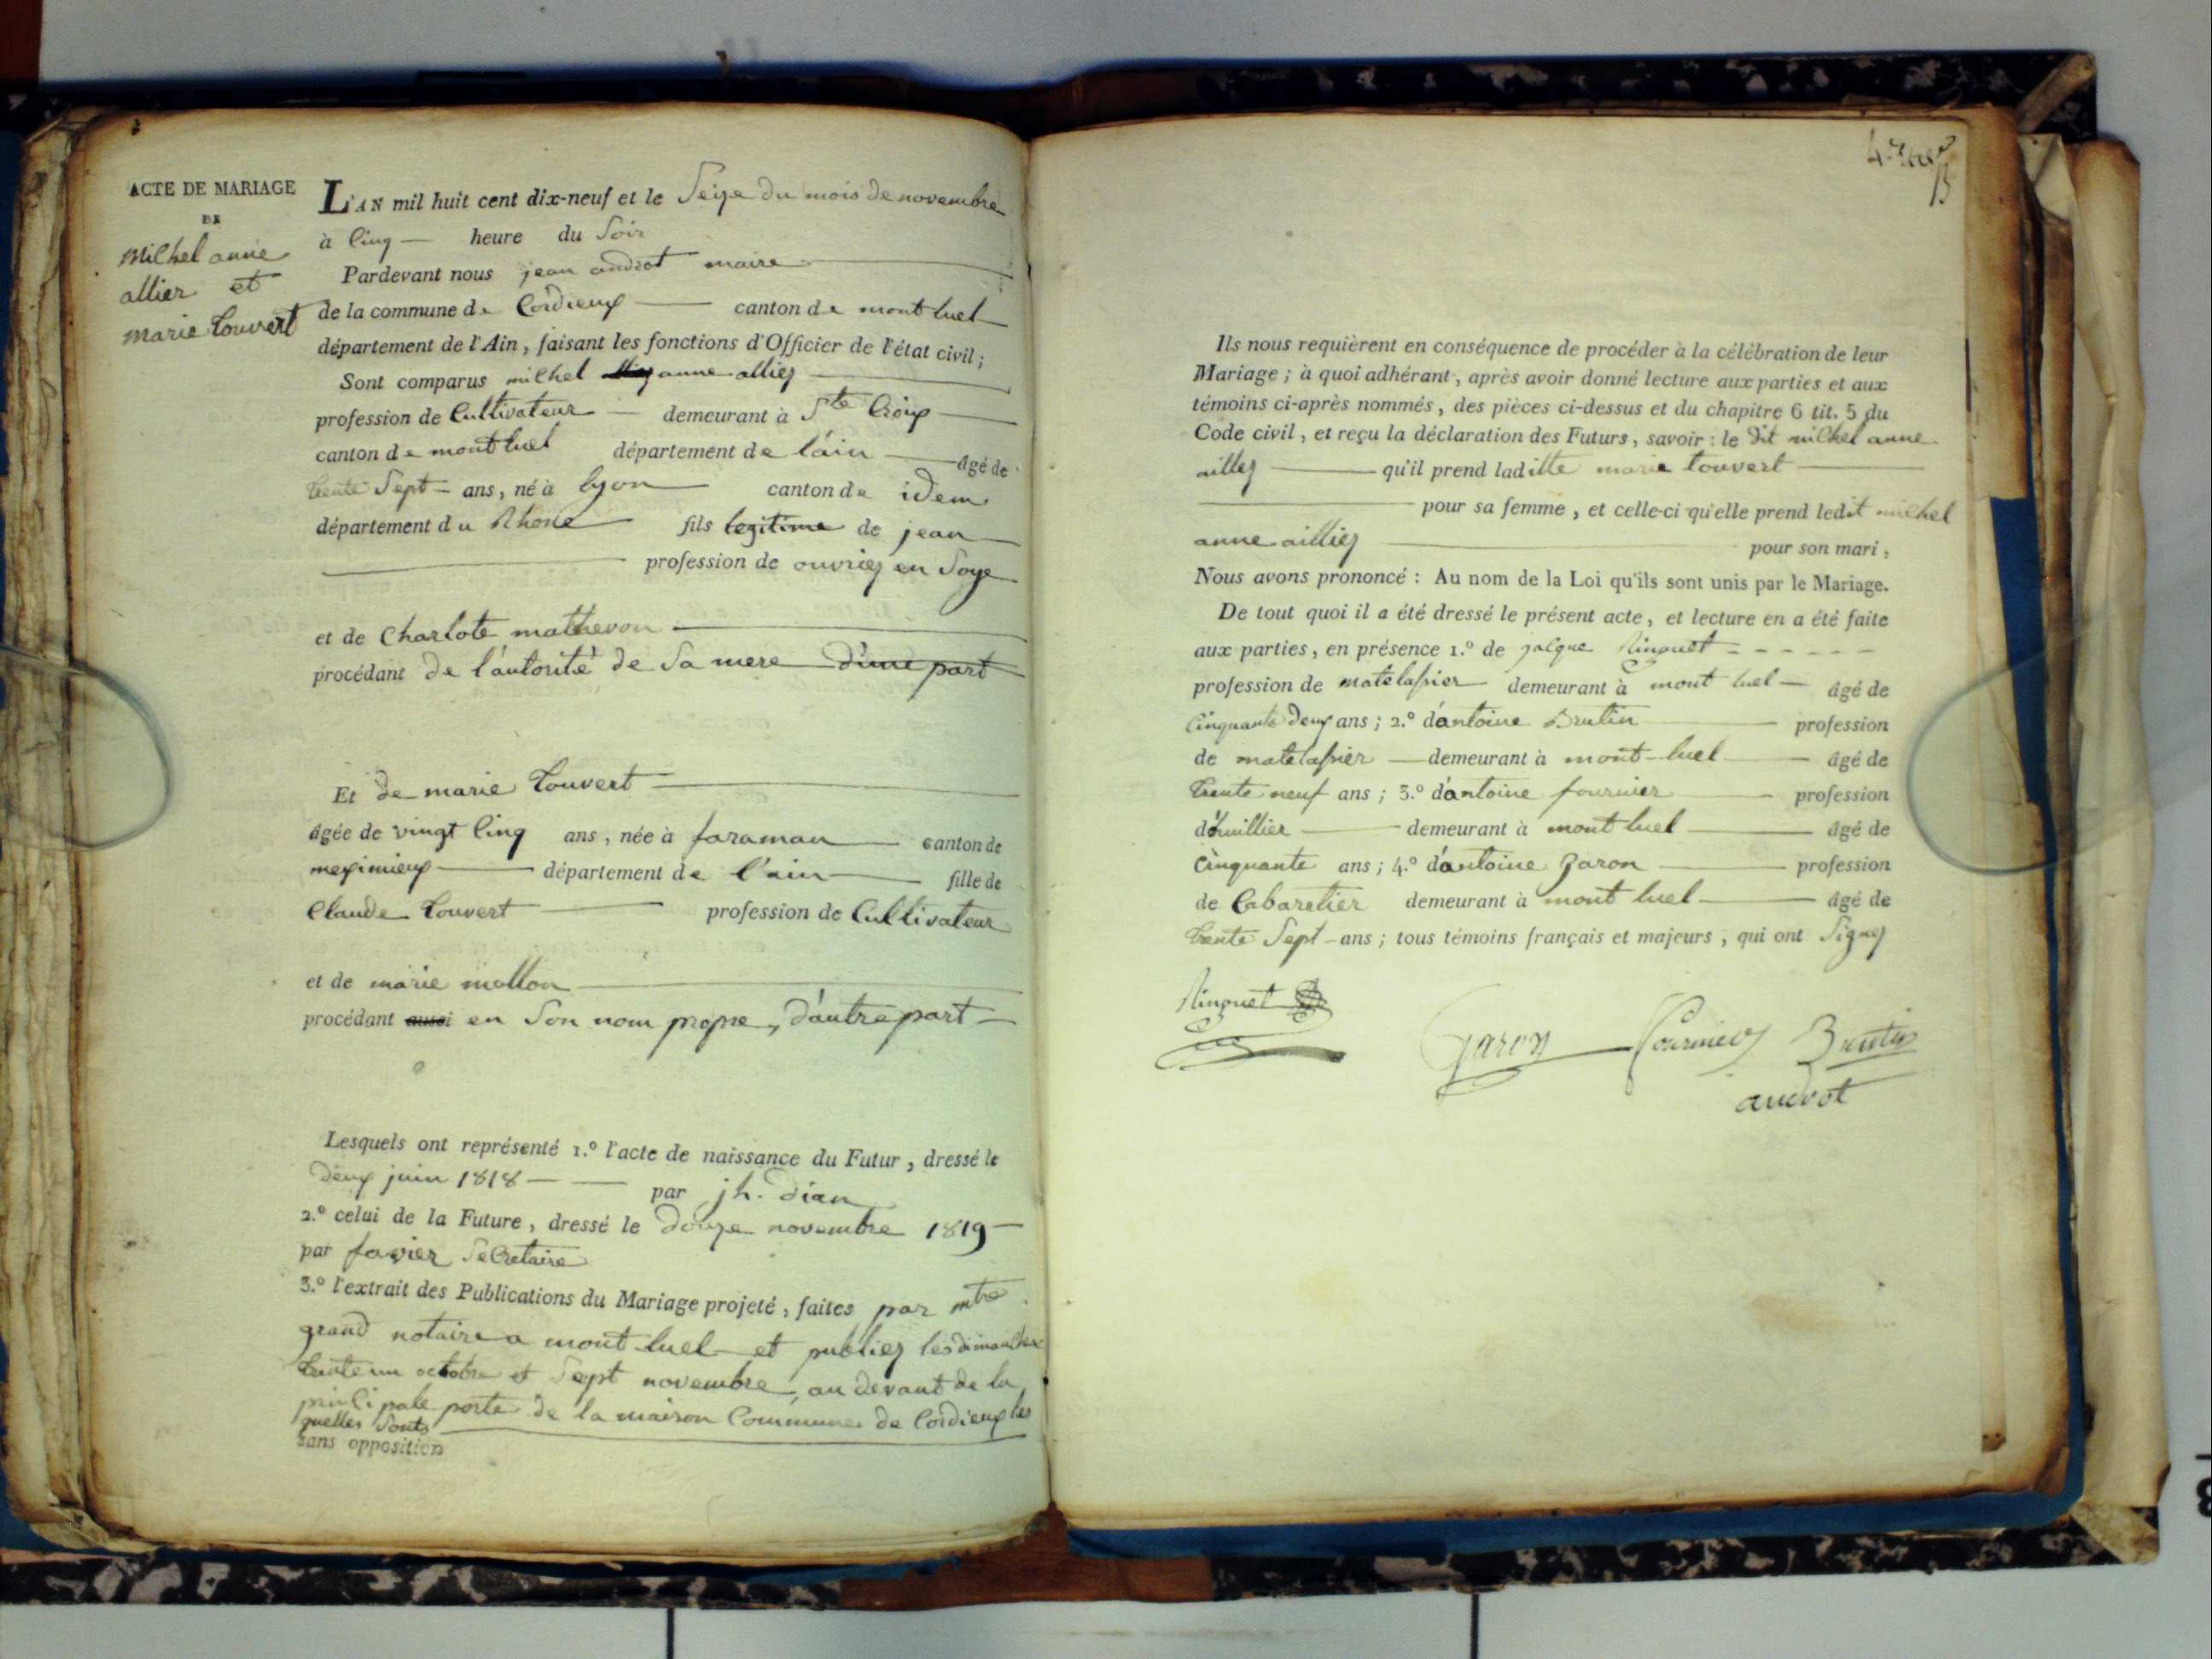 ACTE DE MARIAGE
DE
Michel anne
allier et
marie Couvert
L'AN mil huit cent dix-neuf et le Seize du mois de novembre
à Cinq — heure du Soir
Pardevant nous jean androt maire
de la commune de Cordieux — canton de montluel
département de l'Ain, faisant les fonctions d'Officier de l'état civil;
Sont comparus michel anne alliez
profession de Cultivateur — demeurant à Ste Croix
canton de montluel département de l'ain — âgé de
trente Sept — ans, né à lyon — canton de idem
département du Rhone — fils legitime de jean
profession de ouvriez en Soye
et de Charlote mathevon
procédant de l'autorité de Sa mere d'une part
Et de marie Couvert
âgée de vingt Cinq ans, née à faraman — canton de
meximieux — département de l'ain — fille de
Claude Couvert — profession de Cultivateur
et de marie mollon
procédant aussi en Son nom propre, d'autre part —
Lesquels ont représenté 1.º l'acte de naissance du Futur, dressé le
deux juin 1818 — — par jh. Dian
2.º celui de la Future, dressé le douze novembre 1819 —
par favier Secretaire
3.º l'extrait des Publications du Mariage projeté, faites par mtre
grand notaire a mont-luel et publiez les dimanches
trente un octobre et Sept novembre, au devant de la
principale porte de la maison Commune de Cordieux les
quelles Sonts
sans opposition
Ils nous requièrent en conséquence de procéder à la célébration de leur
Mariage; à quoi adhérant, après avoir donné lecture aux parties et aux
témoins ci-après nommés, des pièces ci-dessus et du chapitre 6 tit. 5 du
Code civil, et reçu la déclaration des Futurs, savoir: le dit michel anne
aillez — qu'il prend laditte marie Couvert —
— pour sa femme, et celle-ci qu'elle prend ledit michel
anne ailliez — pour son mari,
Nous avons prononcé: Au nom de la Loi qu'ils sont unis par le Mariage.
De tout quoi il a été dressé le présent acte, et lecture en a été faite
aux parties, en présence 1.º de jacque Ringuet - - - - - -
profession de matelassier demeurant à mont luel — âgé de
Cinquante deux ans; 2.º d'antoine Brutin — profession
de matelassier — demeurant à mont-luel — âgé de
trente neuf ans; 3.º d'antoine fournier — profession
d'huillier — demeurant à mont luel — âgé de
Cinquante ans; 4.º d'antoine garon — profession
de Cabaretier demeurant à mont luel — âgé de
trente Sept — ans; tous témoins français et majeurs, qui ont Signez
Ringuet
Garon Fournier Brutin
androt